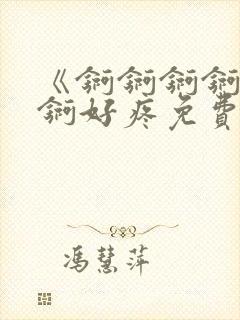 《锕锕锕锕
锕好疼免費
冯慧萍